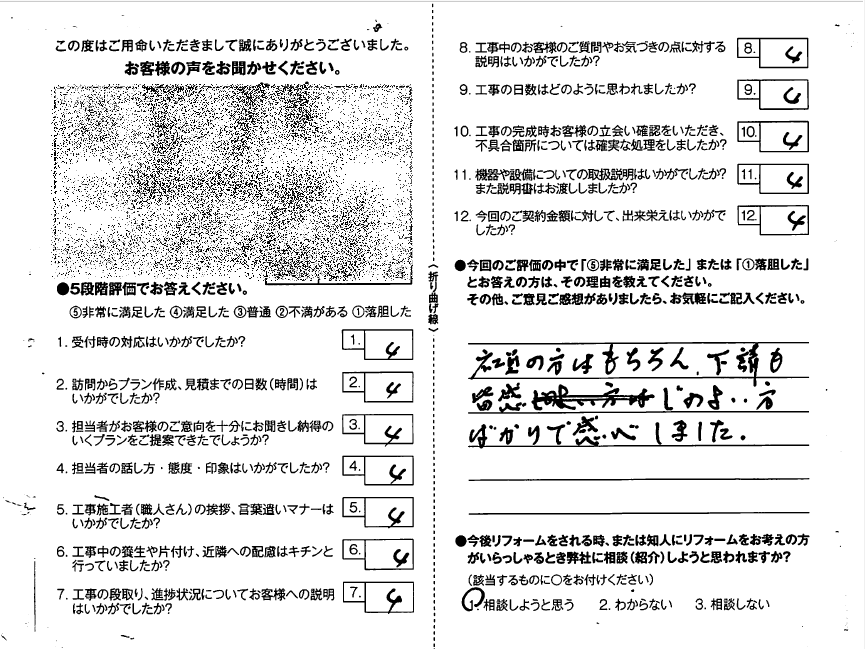 この度はご用命いただきまして誠にありがとうございました。
お客様の声をお聞かせください。
●5段階評価でお答えください。
⑤非常に満足した ④満足した ③普通 ②不満がある ①落胆した
1. 受付時の対応はいかがでしたか?
1. 4
2. 訪問からプラン作成、見積までの日数(時間)は
いかがでしたか?
2. 4
3. 担当者がお客様のご意向を十分にお聞きし納得の
いくプランをご提案できたでしょうか?
3. 4
4. 担当者の話し方・態度・印象はいかがでしたか?
4. 4
5. 工事施工者(職人さん)の挨拶、言葉遣いマナーは
いかがでしたか?
5. 4
6. 工事中の養生や片付け、近隣への配慮はキチンと
行っていましたか?
6. 4
7. 工事の段取り、進捗状況についてお客様への説明
はいかがでしたか?
7. 4
〈折り曲げ線〉
8. 工事中のお客様のご質問やお気づきの点に対する
説明はいかがでしたか?
8. 4
9. 工事の日数はどのように思われましたか?
9. 4
10. 工事の完成時お客様の立会い確認をいただき、
不具合箇所については確実な処理をしましたか?
10. 4
11. 機器や設備についての取扱説明はいかがでしたか?
また説明書はお渡ししましたか?
11. 4
12. 今回のご契約金額に対して、出来栄えはいかがで
したか?
12. 4
●今回のご評価の中で「⑤非常に満足した」または「①落胆した」
とお答えの方は、その理由を教えてください。
その他、ご意見ご感想がありましたら、お気軽にご記入ください。
社員の方はもちろん、下請も
皆感じのよい方
ばかりで感心しました。
●今後リフォームをされる時、または知人にリフォームをお考えの方
がいらっしゃるとき弊社に相談(紹介)しようと思われますか?
(該当するものに○をお付けください)
1. 相談しようと思う 2. わからない 3. 相談しない